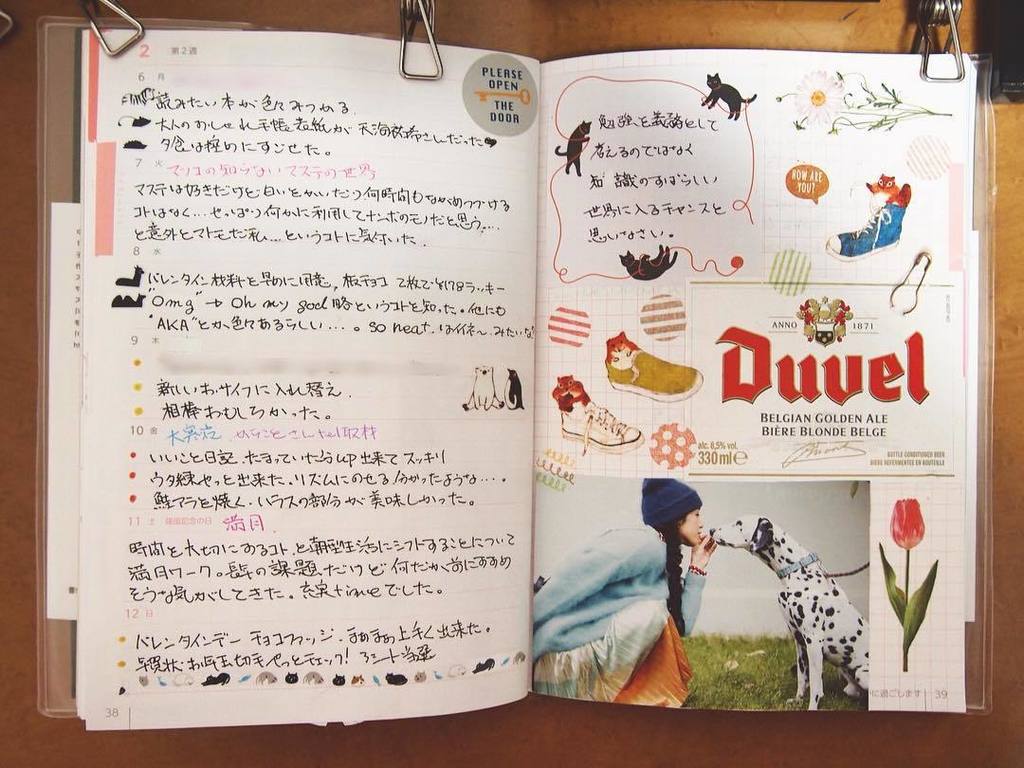 2 第2週
6 月
読みたい本が色々みつかる。
大人のおしゃれ手帳表紙が天海祐希さんだった
夕食は軽めにすごせた。
7 火
マツコの知らないマステの世界
マステは好きだけど白いとかいたっつう何時間もながめつづける
コトはなく…せっぱつ何かに利用してナンボのモノだと思う…
と意外とマトモだ私…というコトに気付いた。
8 水
バレンタイン材料を早めに用意。板チョコ 2枚で¥178ラッキー
"Omg"→Oh my god 略というコトを知った。他にも
"AKA"とか色々あるらしい…。so neat. はイイネ〜みたいな?
9 木
新しいおサイフに入れ替え
相棒おもしろかった。
10 金
いいこと日記 たまっていた分up出来てスッキリ
ウタ練やっと出来た。リズムにのせる分かったような…。
鮭アラを焼く。ハラスの部分が美味しかった。
11 土 建国記念の日 満月
時間を大切にするコト、と朝型生活にシフトすることについて
満月ワーク。長年の課題だけど何だか前にすすめ
そうな気がしてきた。充実timeでした。
12 日
バレンタインデー チョコファッジ。まあまあ上手く出来た。
年賀状・お年玉切手やっとチェック! 3シート当選
38
PLEASE
OPEN
THE
DOOR
勉強を義務として
考えるのではなく
知識のすばらしい
世界に入るチャンスと
思いなさい。
HOW ARE
YOU?
ANNO 1871
Duvel
BELGIAN GOLDEN ALE
BIÈRE BLONDE BELGE
alc. 8,5% vol.
330ml e
BOTTLE CONDITIONED BEER
BIÈRE REFERMENTÉE EN BOUTEILLE
に過ごします
39